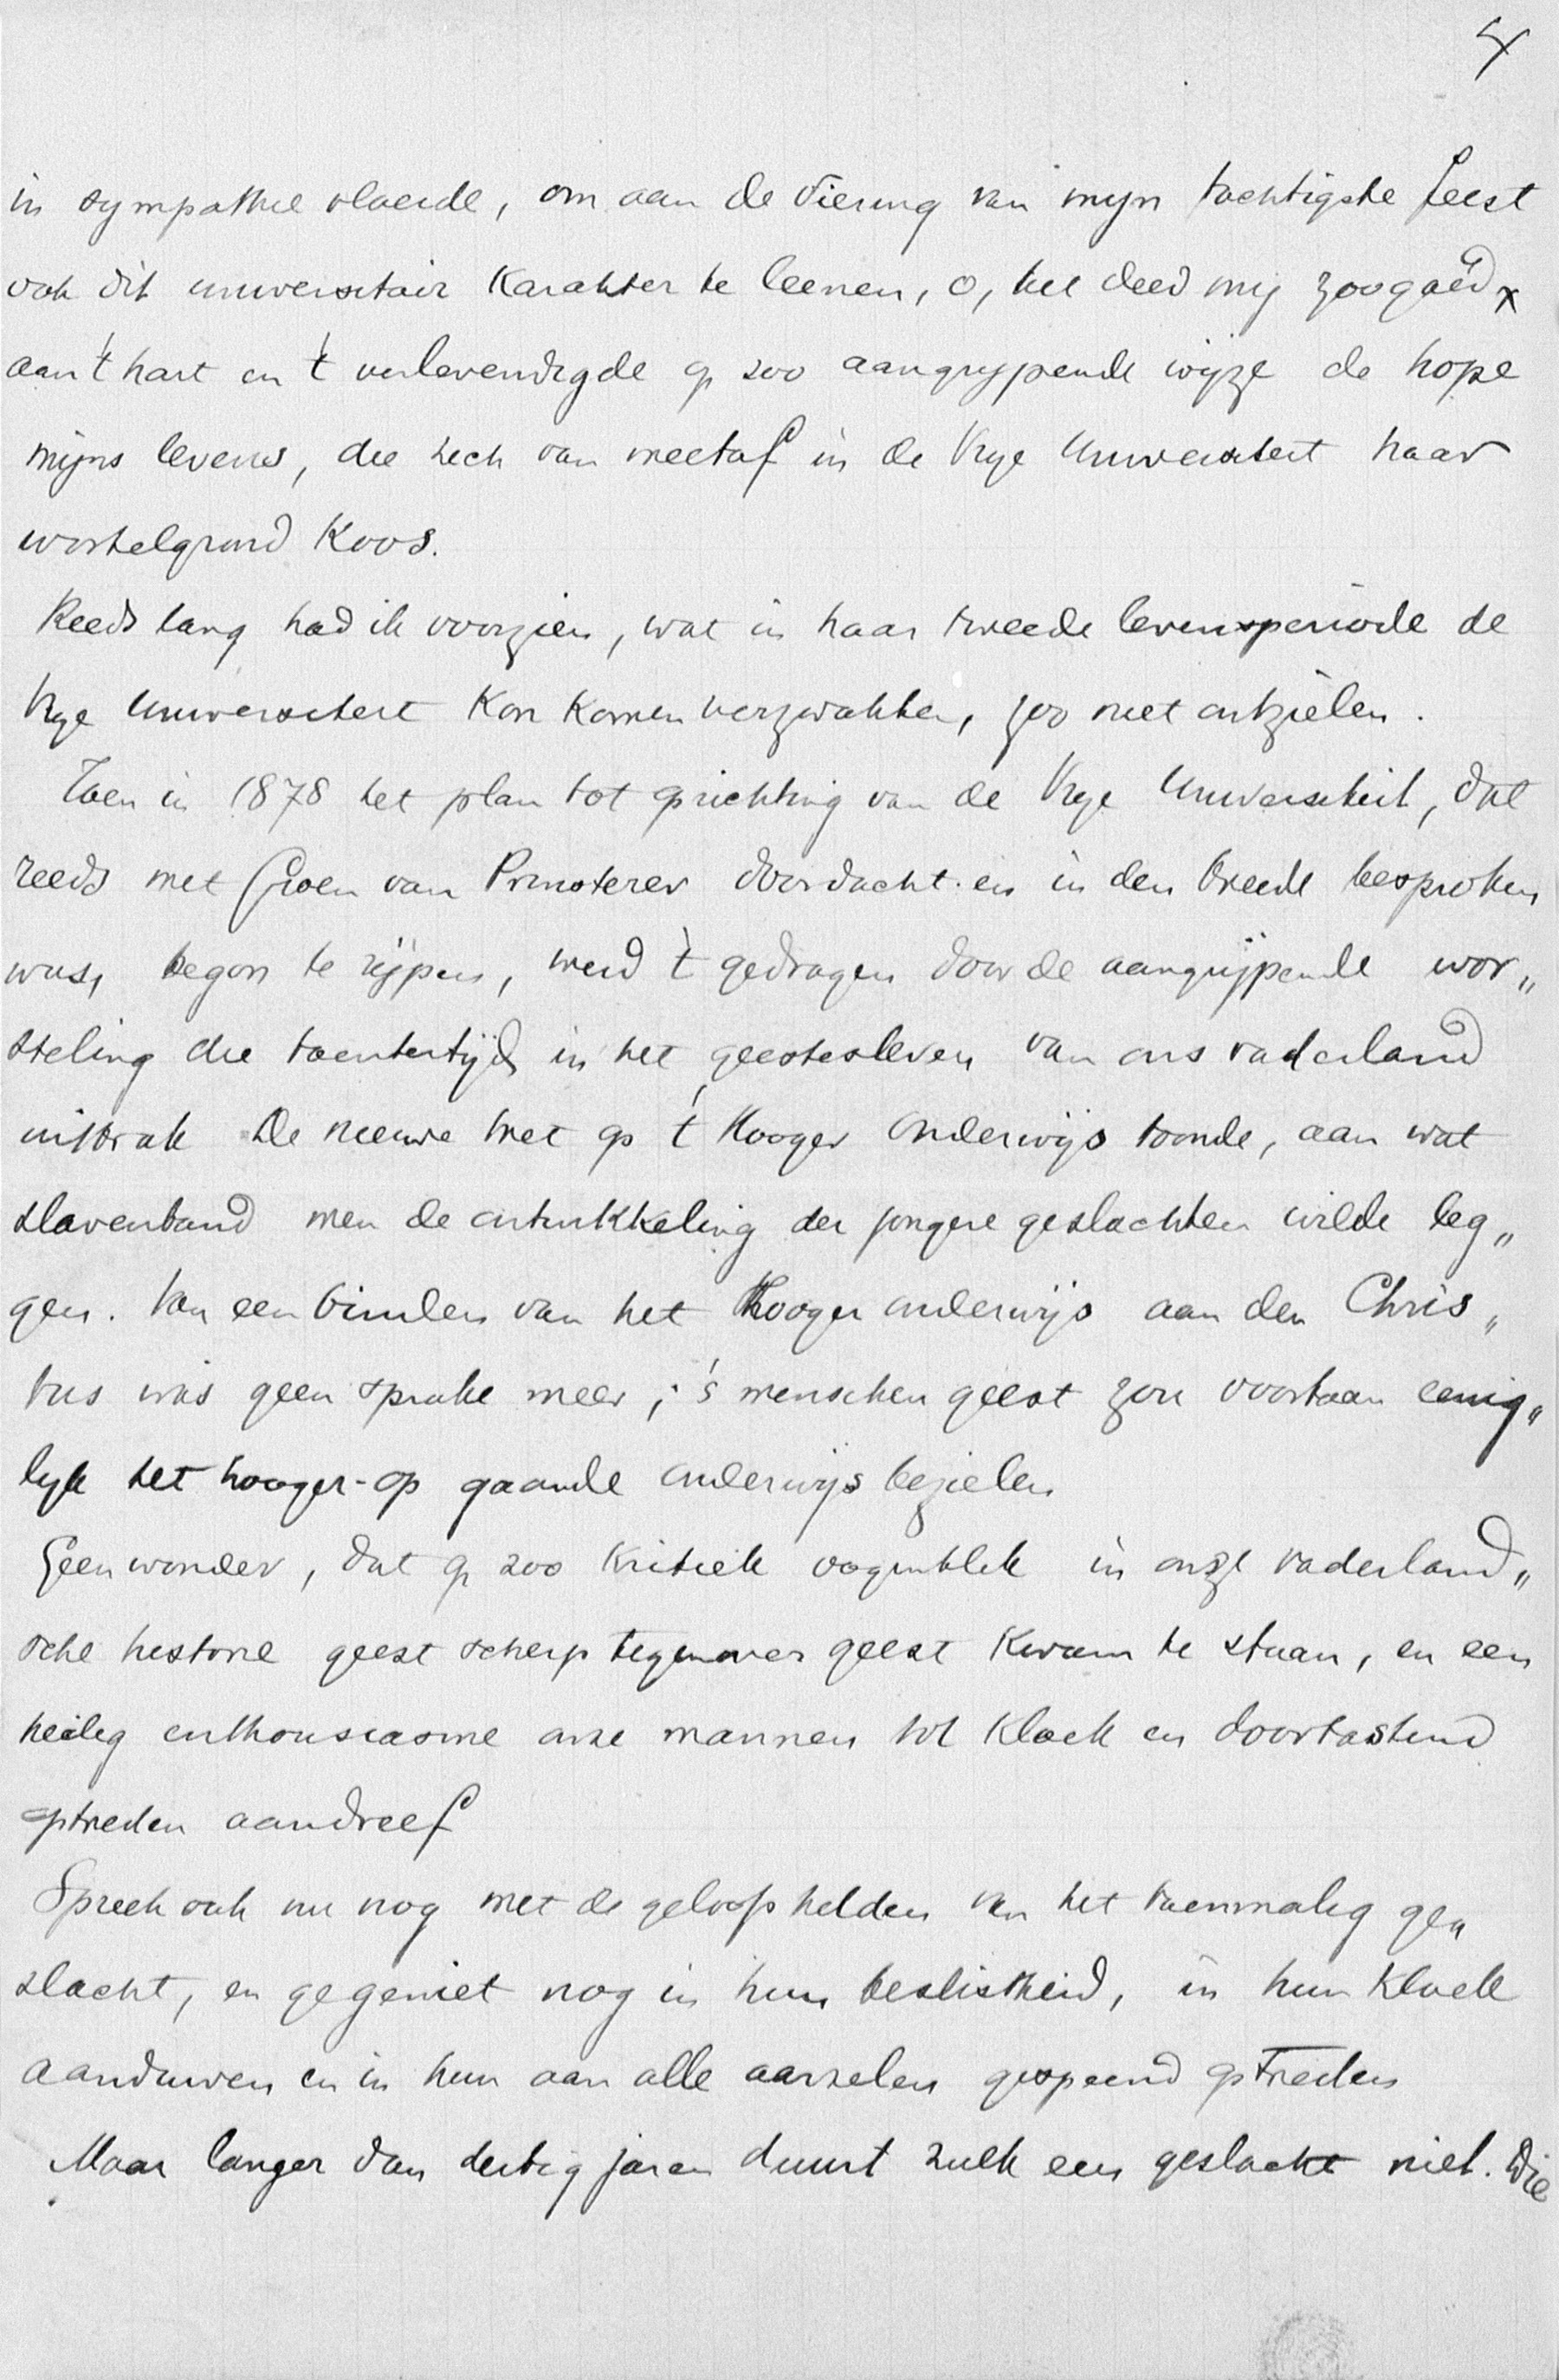 4
in sympathie vloeide, om aan de viering van mijn tachtigste feest
ook dit universitair karakter te leenen, o, het deed mij zoo goed x
aan 't hart en 't verlevendigde op zoo aangrijpende wijze de hope
mijns levens, die zich van meetaf in de Vrije Universiteit haar
wortelgrond koos.
Reeds lang had ik voorzien, wat in haar tweede levensperiode de
Vrije Universiteit kon komen verzwakken, zoo niet ontzielen.
Toen in 1878 het plan tot oprichting van de Vrije Universiteit, dat
reeds met Groen van Prinsterer doordacht en in den breede besproken
was, begon te rijpen, werd 't gedragen door de aangrijpende wor„
steling die toentertijd in het geestesleven van ons vaderland
uitbrak De nieuwe wet op 't Hooger Onderwijs toonde, aan wat
slavenband men de ontwikkeling der jongere geslachten wilde leg„
gen. Van een binden van het Hooger onderwijs aan den Chris„
tus was geen sprake meer; 's menschen geest zou voortaan eenig„
lijk het hooger-op gaande onderwijs bezielen
Geen wonder, dat op zoo kritiek oogenblik in onze vaderland„
sche historie geest scherp tegenover geest kwam te staan, en een
heilig enthousiasme onze mannen tot kloek en doortastend
optreden aandreef
Spreek ook nu nog met de geloofshelden van het toenmalig ge„
slacht, en ge geniet nog in hun beslistheid, in hun kloek
aanduwen en in hun aan alle aarzelen gespeend optreden
Maar langer dan dertig jaren duurt zulk een geslacht niet. Die